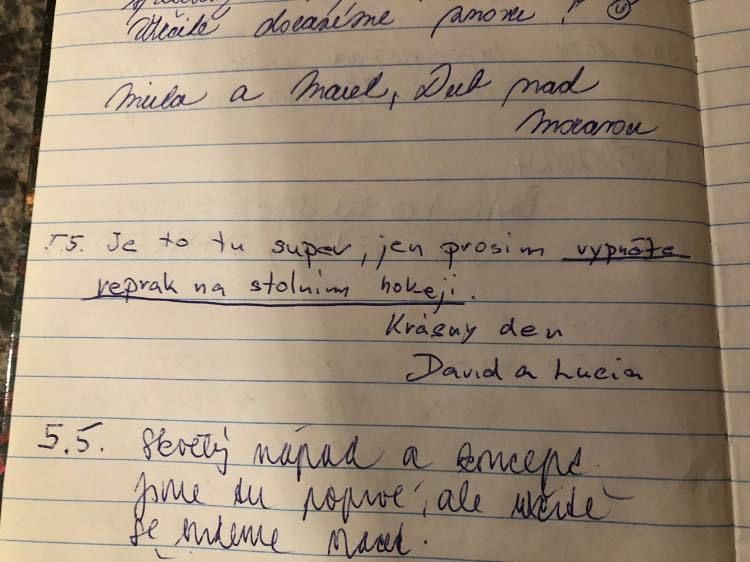 Určitě dorazíme znovu! ☺
Mila a Marel, Dub nad
Moravou
5.5. Je to tu super, jen prosim vypněte
reprak na stolnim hokeji.
Krásny den
David a Lucia
5.5. Skvělý nápad a koncept
jsme tu poprvé, ale určitě
se vrátíme